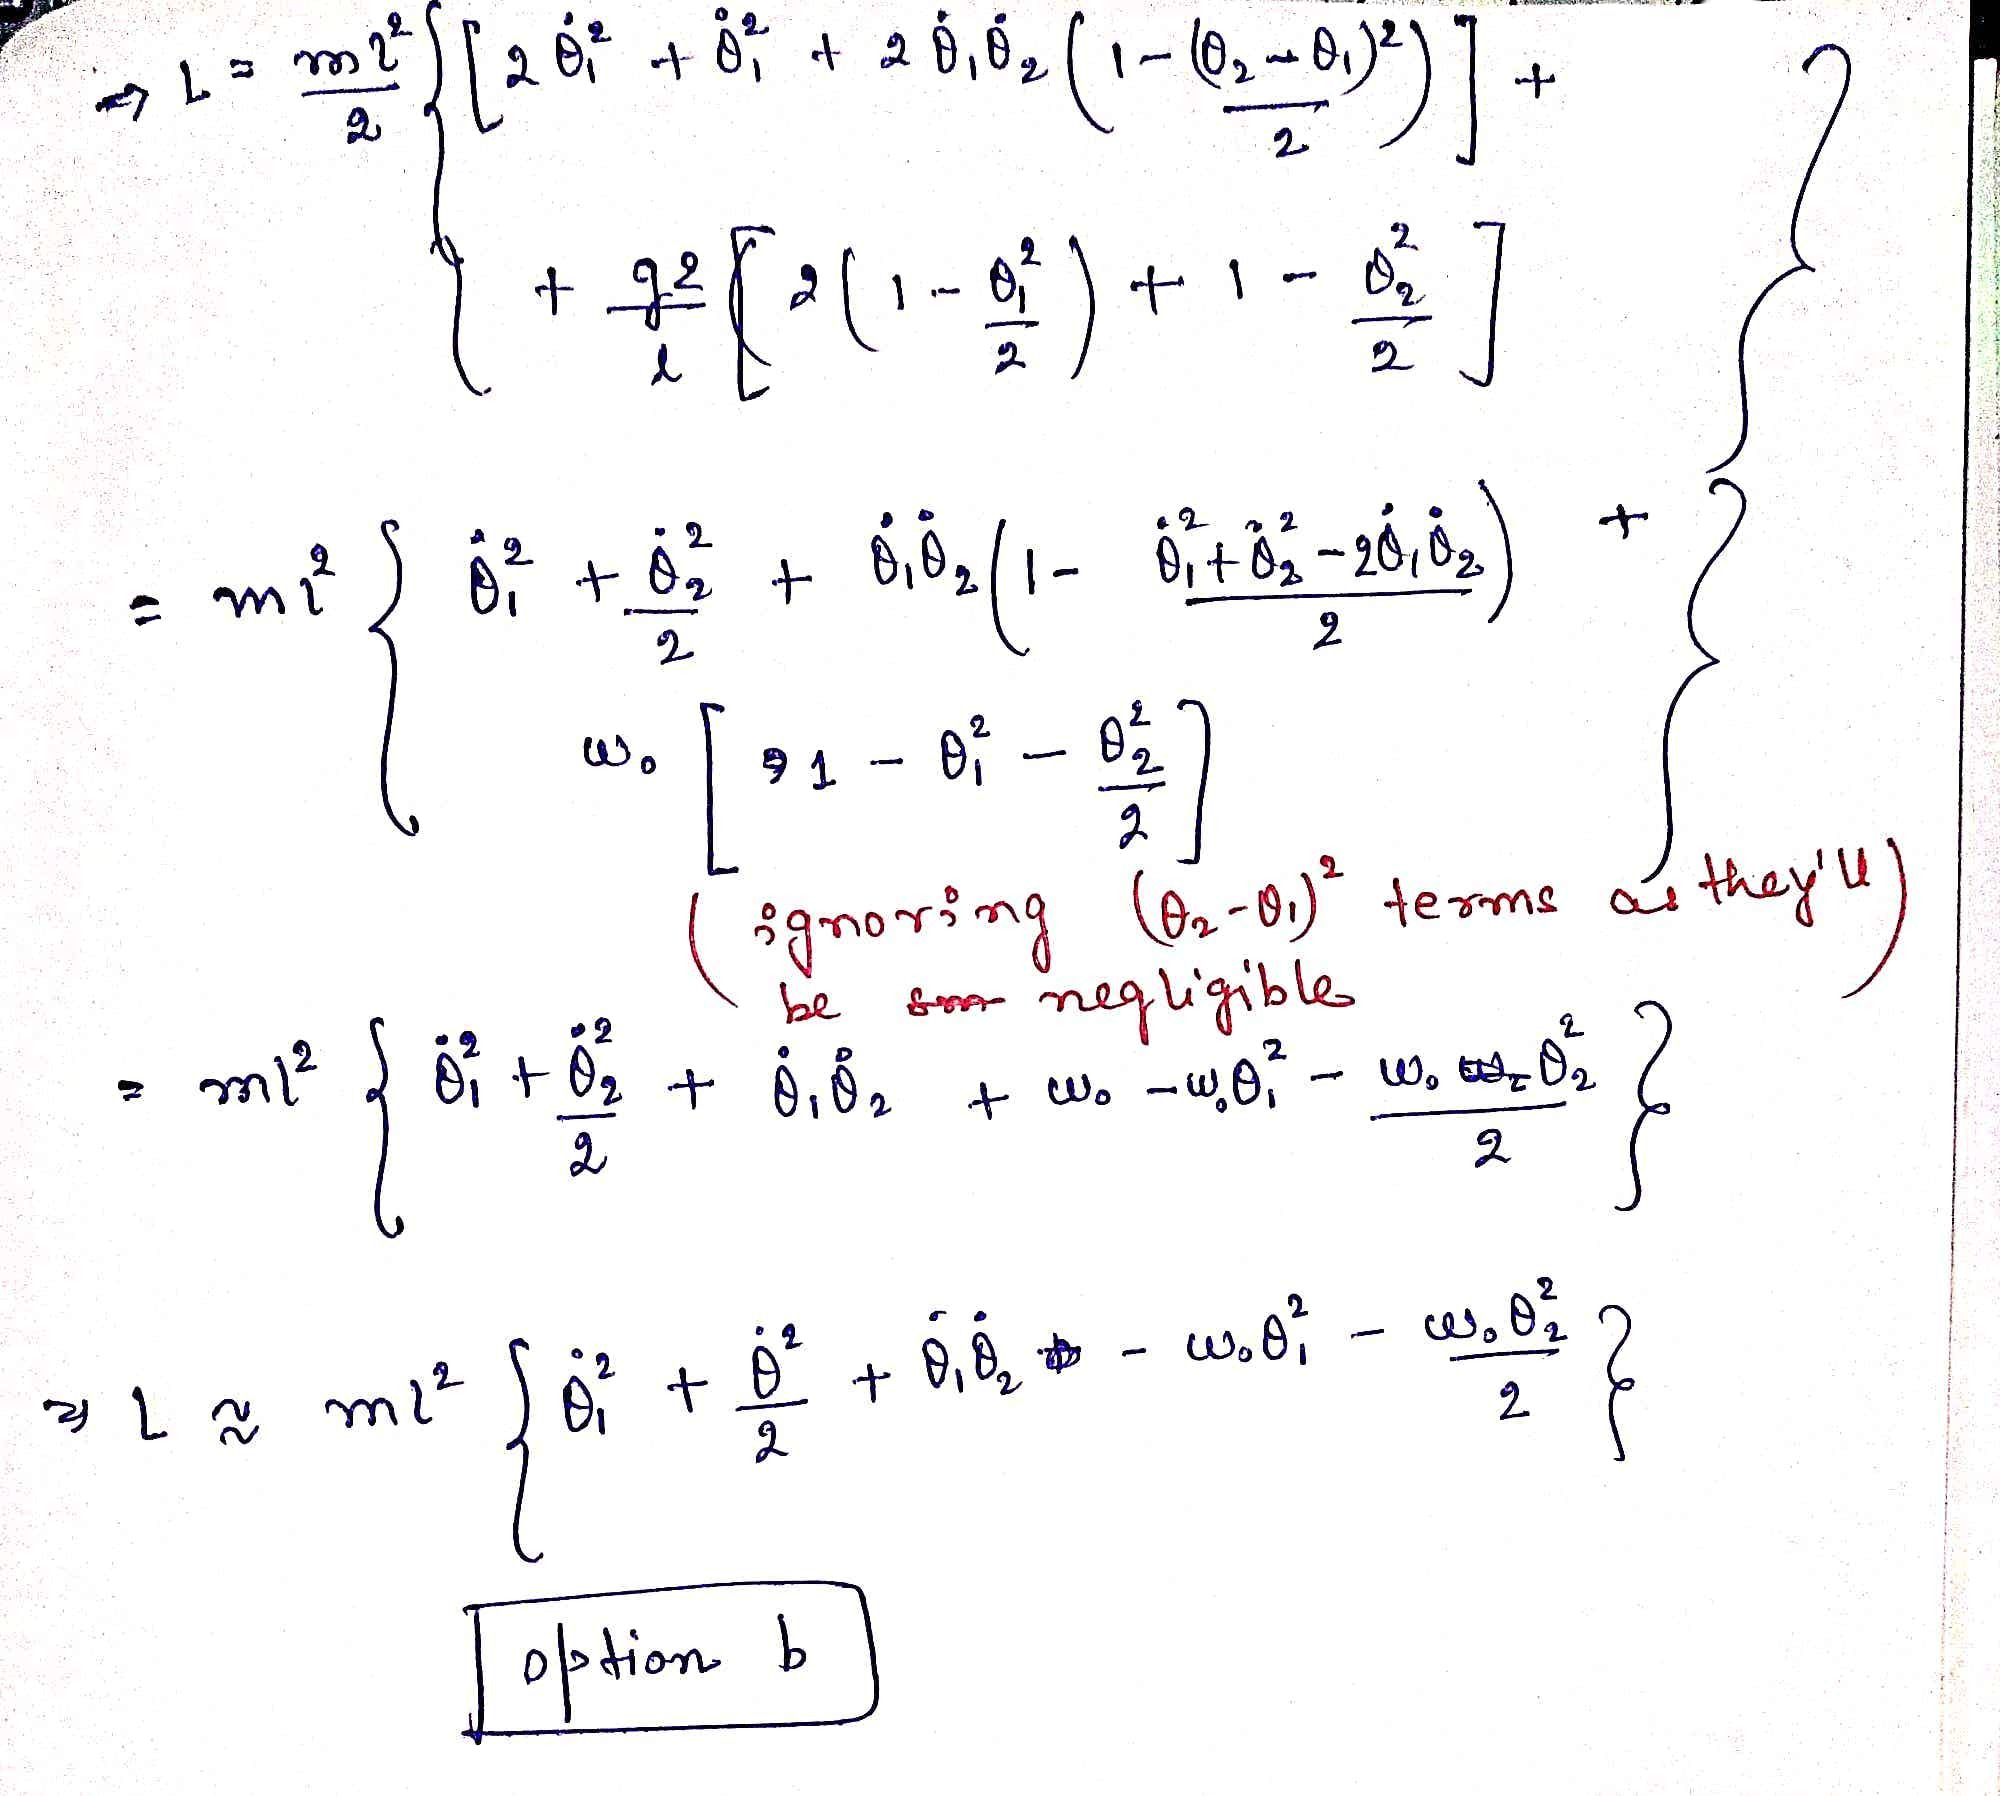 ⇒ L = ml²/2 { [ 2 θ̇₁² + θ̇₁² + 2 θ̇₁θ̇₂ ( 1 - (θ₂ - θ₁)²/2 ) ] +
+ g2/l [ 2 ( 1 - θ₁²/2 ) + 1 - θ₂²/2 ] }
= ml² { θ̇₁² + θ̇₂²/2 + θ̇₁θ̇₂ ( 1 - (θ̇₁² + θ̇₂² - 2θ̇₁θ̇₂)/2 ) +
ω₀ [ 1 - θ₁² - θ₂²/2 ] }
( ignoring (θ₂-θ₁)² terms as they'll
be negligible )
= ml² { θ̇₁² + θ̇₂²/2 + θ̇₁θ̇₂ + ω₀ - ω₀θ₁² - ω₀θ₂²/2 }
⇒ L ≈ ml² { θ̇₁² + θ̇²/2 + θ̇₁θ̇₂ - ω₀θ₁² - ω₀θ₂²/2 }
option b